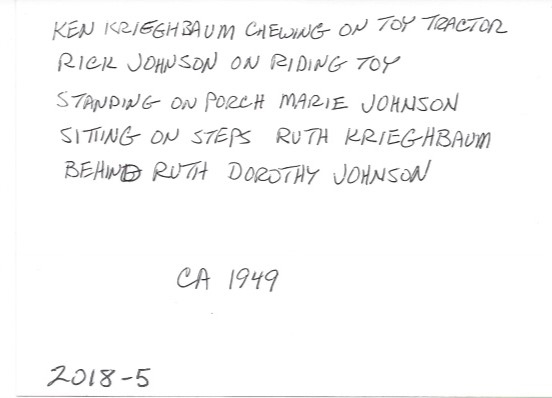 KEN KRIEGHBAUM CHEWING ON TOY TRACTOR
RICK JOHNSON ON RIDING TOY
STANDING ON PORCH MARIE JOHNSON
SITTING ON STEPS RUTH KRIEGHBAUM
BEHIND RUTH DOROTHY JOHNSON
CA 1949
2018-5